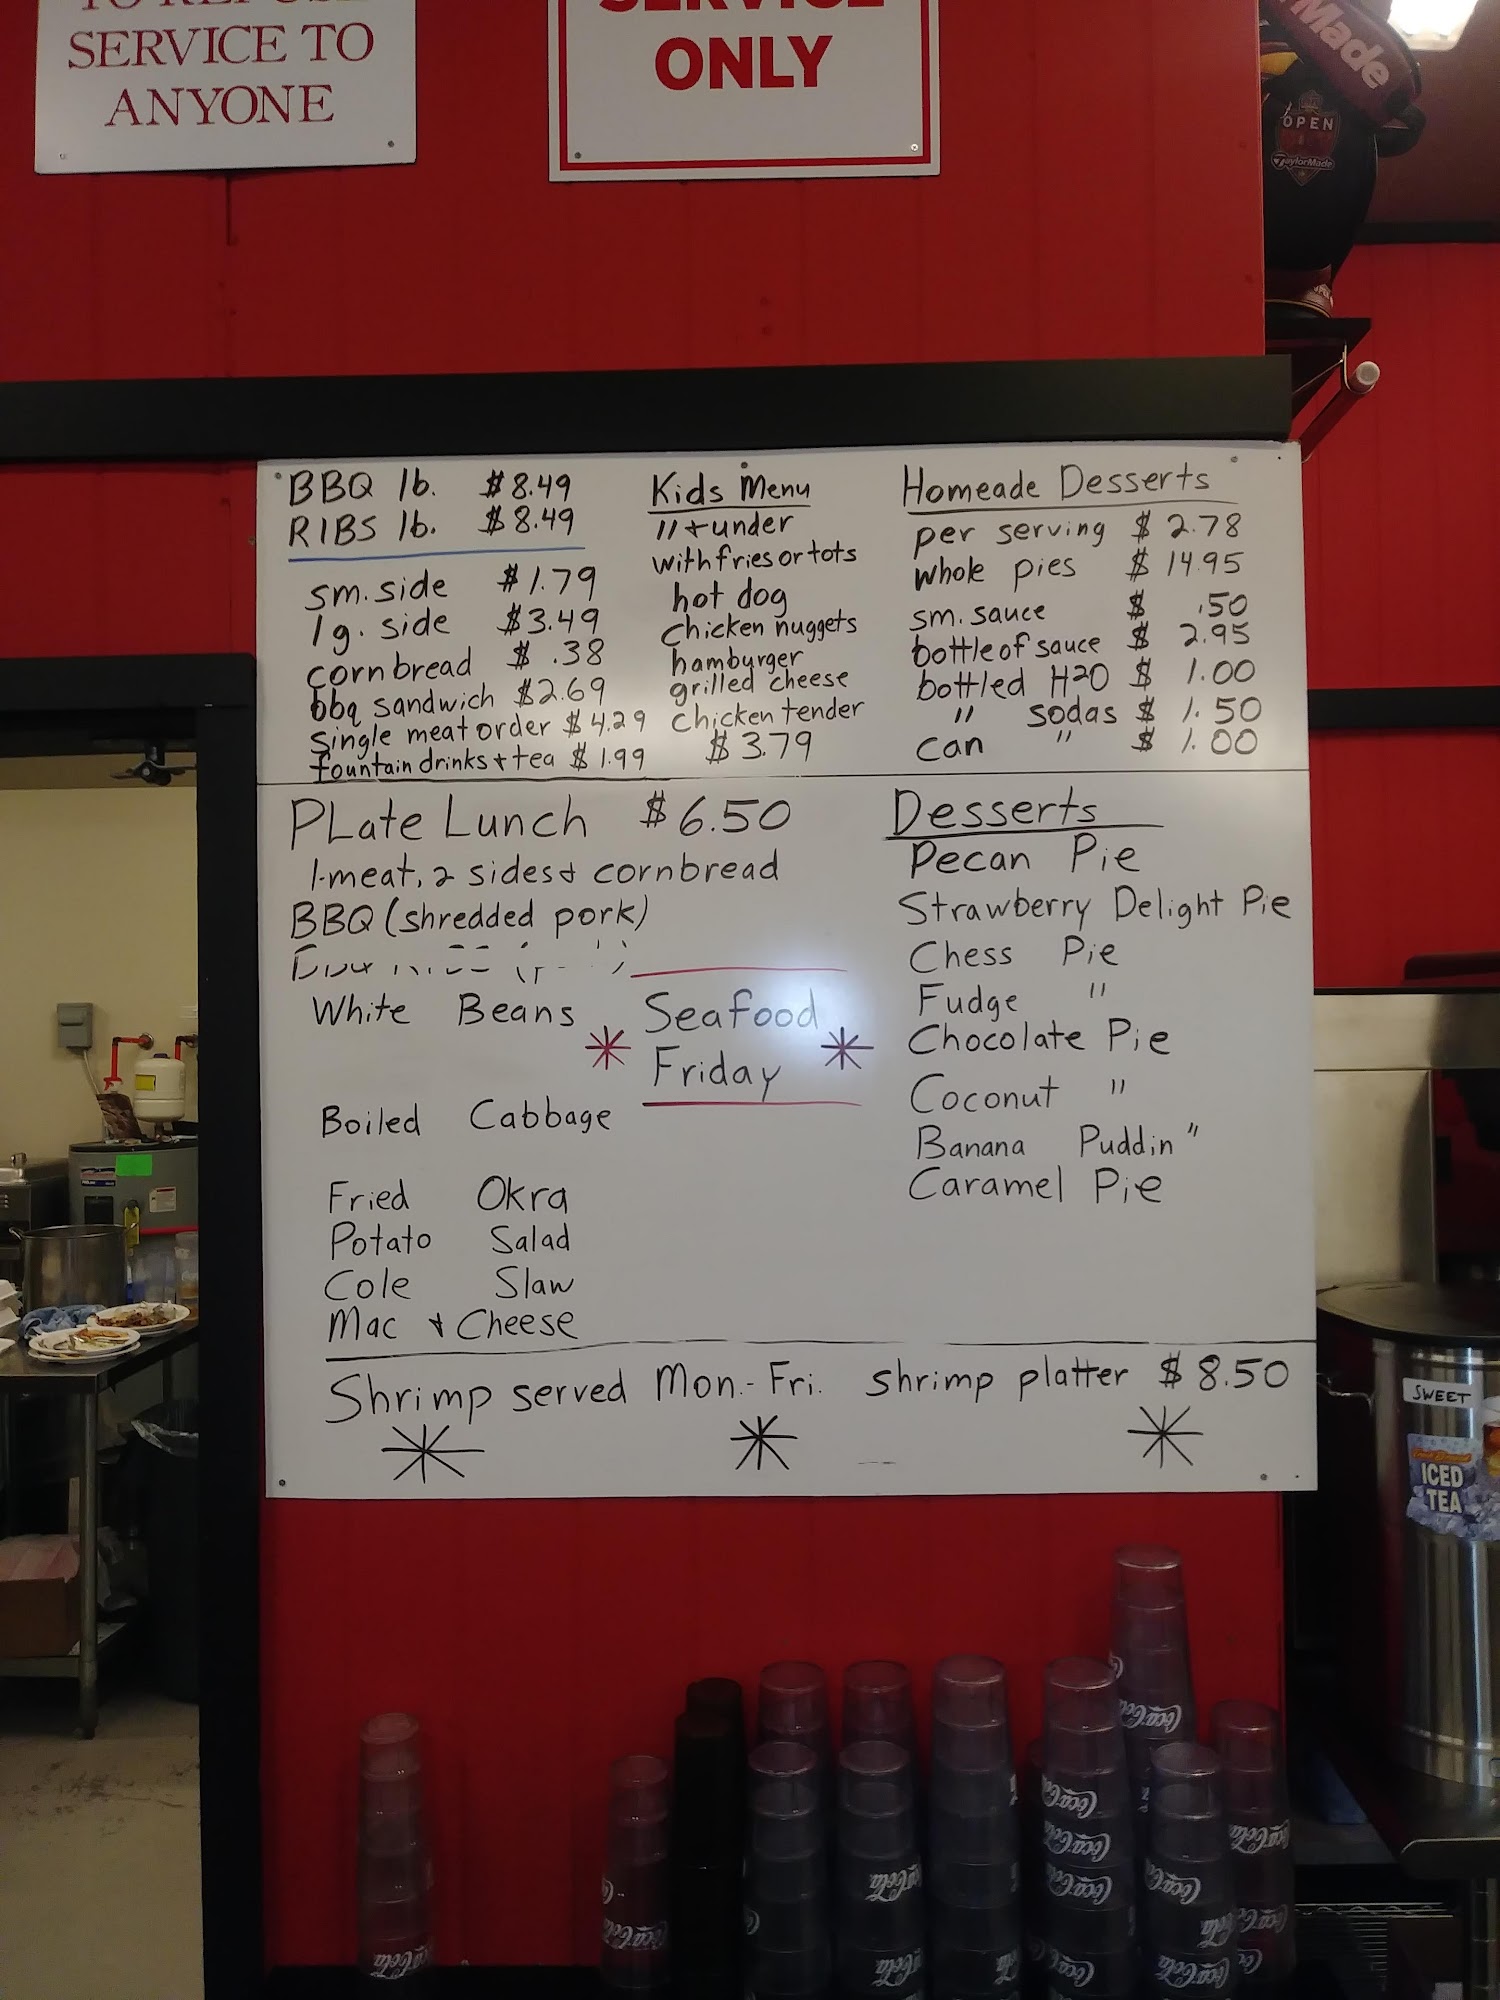 TO REFUSE
SERVICE TO
ANYONE
SERVICE
ONLY
Made
OPEN
TaylorMade
BBQ lb. $8.49
RIBS lb. $8.49
sm. side $1.79
lg. side $3.49
cornbread $ .38
bbq sandwich $2.69
single meat order $4.29
fountain drinks + tea $1.99
Kids Menu
11 + under
with fries or tots
hot dog
chicken nuggets
hamburger
grilled cheese
chicken tender
$3.79
Homeade Desserts
per serving $ 2.78
whole pies $ 14.95
sm. sauce $ .50
bottle of sauce $ 2.95
bottled H2O $ 1.00
" sodas $ 1.50
can " $ 1.00
PLate Lunch $6.50
1-meat, 2 sides & cornbread
BBQ (shredded pork)
White Beans
Boiled Cabbage
Fried Okra
Potato Salad
Cole Slaw
Mac & Cheese
Seafood
Friday
Desserts
Pecan Pie
Strawberry Delight Pie
Chess Pie
Fudge "
Chocolate Pie
Coconut "
Banana Puddin"
Caramel Pie
Shrimp served Mon.-Fri. shrimp platter $8.50
SWEET
ICED
TEA
Coca-Cola
Coca-Cola
Coca-Cola
Coca-Cola
Coca-Cola
Coca-Cola
Coca-Cola
Coca-Cola